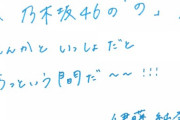 乃木坂46の"の"
んかと いっしょだと
っという間だ～～!!!
伊藤純